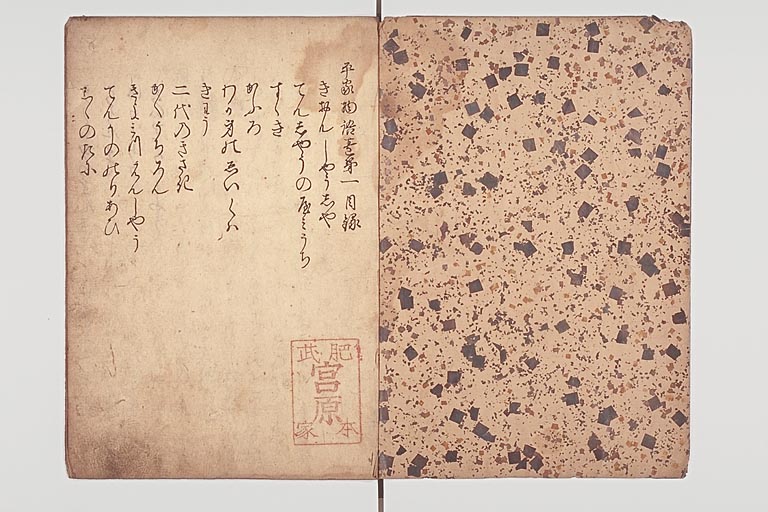 平家物語巻第一目録
きおんしやうしや
てんしやうのやみうち
すゝき
かふろ
わか身のゑいくわ
きわう
二代のきさき
かくうちろん
きよみつはんしやう
てんかののりあひ
しゝのたに
肥
武
宮原
本
家